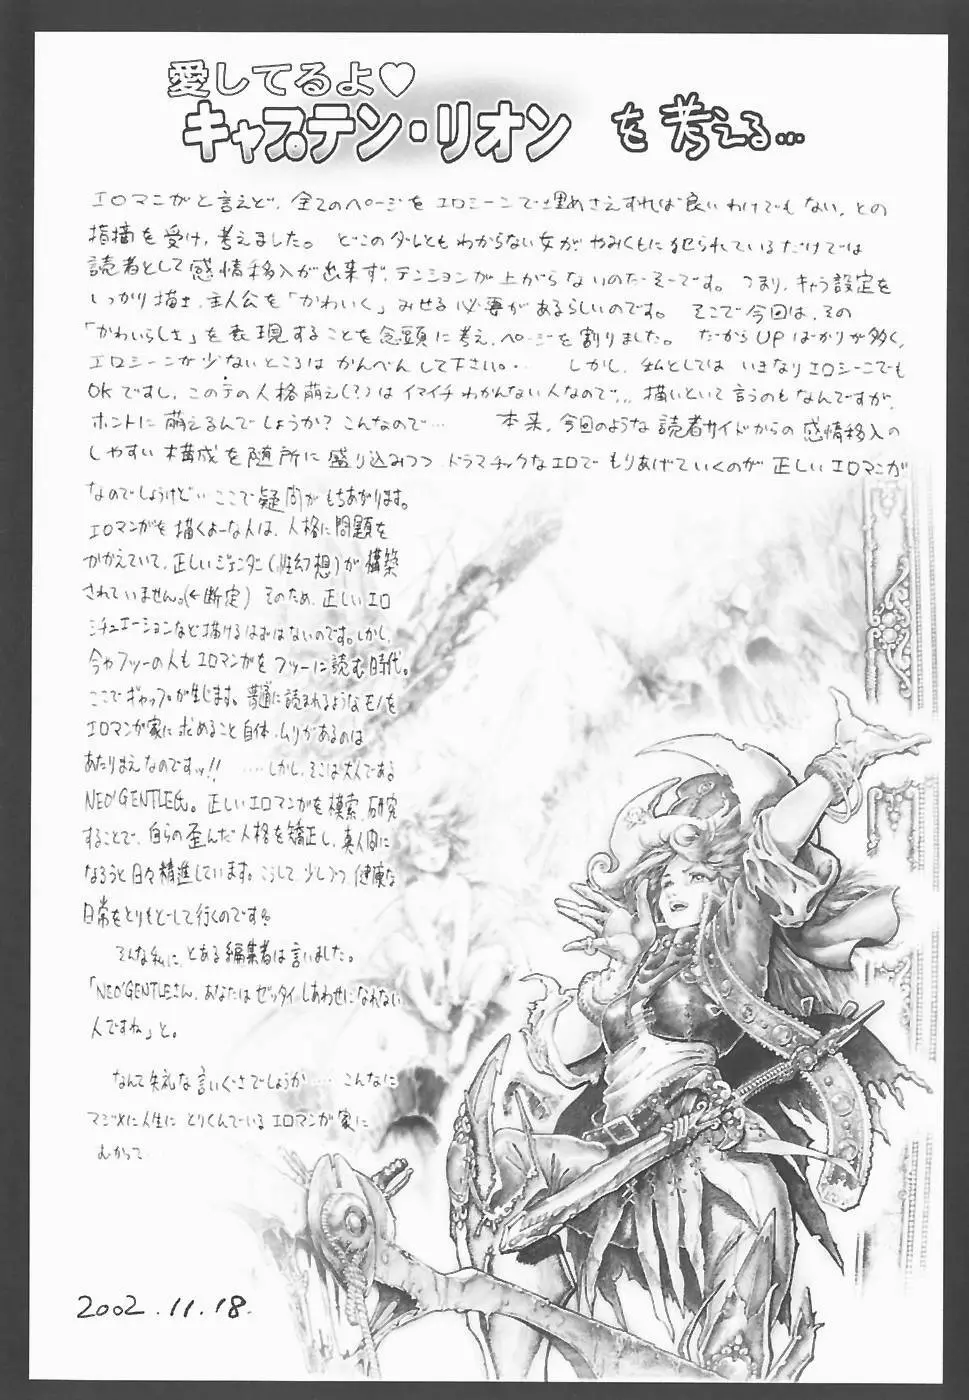 愛してるよ♡
キャプテン・リオン を考える…
エロマンガと言えど、全てのページをエロシーンで埋めさえすれば良いわけでもない、との
指摘を受け、考えました。 どこのダレともわからない女がやみくもに犯られているだけでは
読者として感情移入が出来ず、テンションが上がらないのだそーです。 つまり、キャラ設定を
しっかり描き、主人公を「かわいく」みせる必要があるらしいのです。 そこで今回は、その
「かわいらしさ」を表現することを念頭に考え、ページを割りました。 だからUPばかりが多く、
エロシーンが少ないところはかんべんして下さい。‥ しかし、私としてはいきなりエロシーンでも
OKですし、このテの人格萌え(?)はイマイチわかんない人なので…、描いといて言うのもなんですが、
ホントに萌えるんでしょうか?こんなので… 本来、今回のような読者サイドからの感情移入の
しやすい構成を随所に盛り込みつつ、ドラマチックなエロでもりあげていくのが正しいエロマンガ
なのでしょうけど‥ここで疑問がもちあがります。
エロマンガを描くよーな人は、人格に問題を
かかえていて、正しいジェンダー(性幻想)が構築
されていません。(←断定) そのため、正しいエロ
シチュエーションなど描けるはずはないのです。しかし、
今やフツーの人もエロマンガをフツーに読む時代。
ここでギャップが生じます。普通に読まれるようなモノを
エロマンガ家に求めること自体、ムリがあるのは
あたりまえなのですッ!! ‥‥しかし、そこは大人である
NEO'GENTLE氏。正しいエロマンガを模索、研究
することで、自らの歪んだ人格を矯正し、真人間に
なろうと日々精進しています。こうして、少しづつ健康な
日常をとりもどして行くのです。
そんな私に、とある編集者は言いました。
「NEO'GENTLEさん、あなたはゼッタイ、しあわせになれない
人ですね」と。
なんて失礼な言いぐさでしょうか…‥こんなに
マジメに人生にとりくんでいるエロマンガ家に
むかって
2002.11.18.